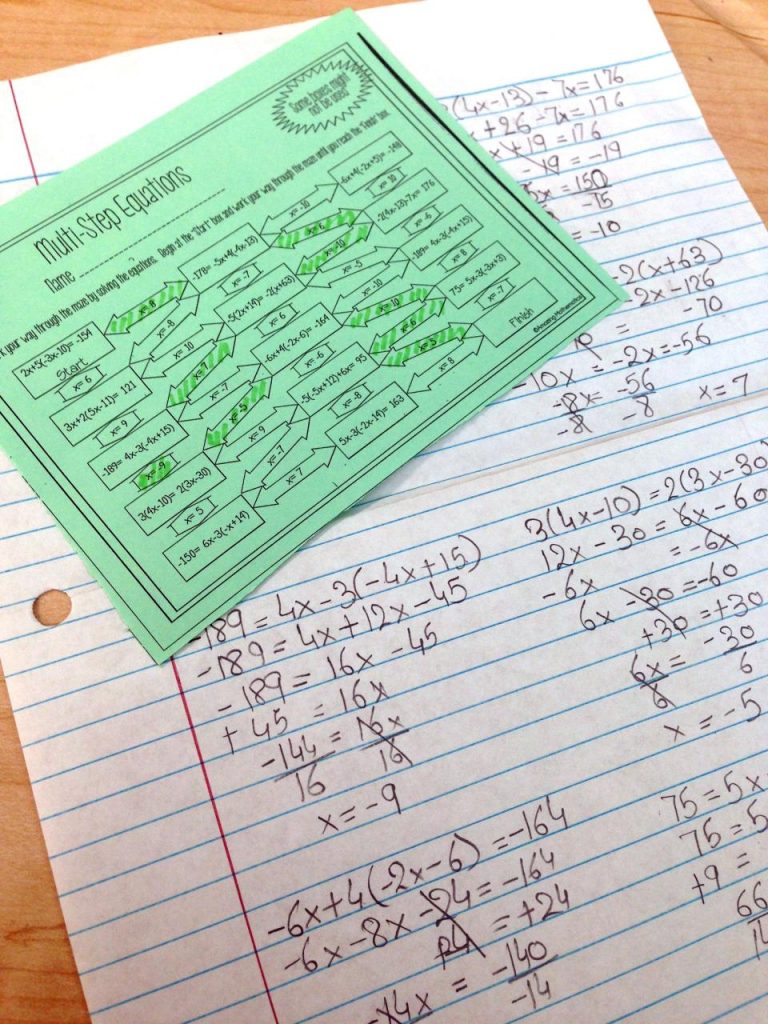 Some boxes might
not be used!
Multi-Step Equations
Name
your way through the maze by solving the equations. Begin at the "Start" box and work your way through the maze until you reach the "Finish" box.
2x+5(-3x-10)= -154
Start
x= -8
-178= -5x+4(4x-13)
x= -10
-6x+4(-2x+5)= -148
x= 6
x= -8
x= -7
x= 10
3x+2(5x-11)= 121
x= 10
-5(2x+14)= -2(x+63)
x= -5
-2(4x-13)-7x= 176
x= 9
x= -7
x= 6
x= -10
x= -6
-189= 4x-3(-4x+15)
-6x+4(-2x-6)= -164
x= 10
-189= 4x-3(4x+15)
x= -9
x= -5
x= -6
x= 6
x= 8
3(4x-10)= 2(3x-30)
x= 9
-5(-5x+12)+6x= 95
x= 5
75= 5x-3(-3x+3)
x= 5
x= -7
x= -8
x= 8
x= -7
-150= 6x-3(-x+14)
x= 7
5x-3(-2x-14)= 163
Finish
(4x-13) - 7x = 176
x + 26 - 7x = 176
x + 19 = 176
- 19 = -19
x = 150
-15
= -10
2(x+63)
-2x-126
-70
= -2x = -56
-10x
-8x = -56
-8 -8 x = 7
-189 = 4x - 3(-4x + 15)
-189 = 4x + 12x - 45
-189 = 16x - 45
+ 45 = 16x
-144 = 16x
16 16
x = -9
3(4x-10) = 2(3x-30)
12x - 30 = 6x - 60
-6x = -6x
6x - 30 = -60
+30 = +30
6x = -30
6 6
x = -5
-6x + 4(-2x-6) = -164
-6x - 8x - 24 = -164
24 = +24
-14x = -140
-14
75 = 5x
75 = 5
+9 =
66
14